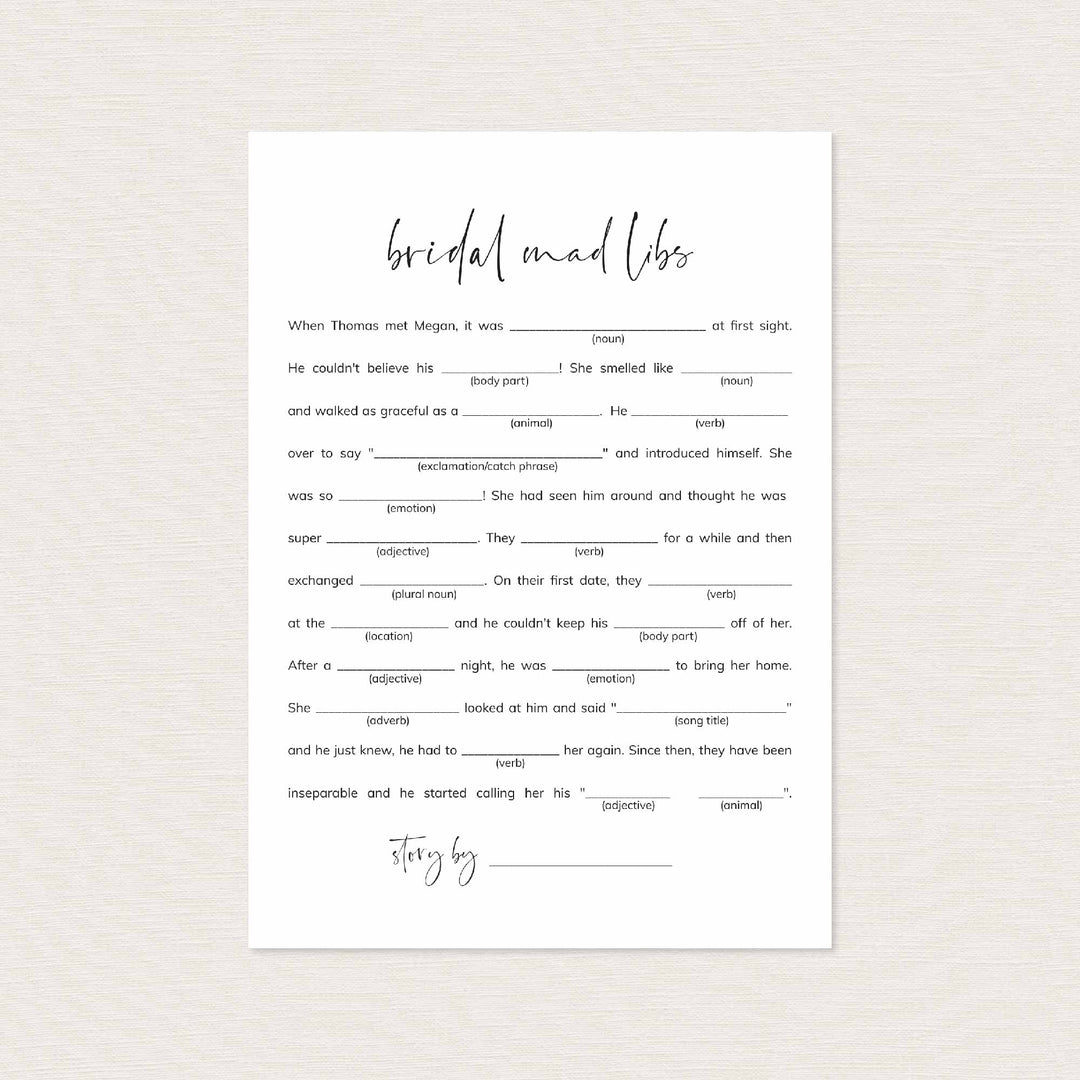 bridal mad libs
When Thomas met Megan, it was ______________________________ at first sight.
(noun)
He couldn't believe his __________________! She smelled like _________________
(body part) (noun)
and walked as graceful as a _____________________. He ________________________
(animal) (verb)
over to say "___________________________________" and introduced himself. She
(exclamation/catch phrase)
was so ______________________! She had seen him around and thought he was
(emotion)
super _______________________. They _____________________ for a while and then
(adjective) (verb)
exchanged ___________________. On their first date, they ______________________
(plural noun) (verb)
at the __________________ and he couldn't keep his _________________ off of her.
(location) (body part)
After a __________________ night, he was __________________ to bring her home.
(adjective) (emotion)
She ______________________ looked at him and said "__________________________"
(adverb) (song title)
and he just knew, he had to _______________ her again. Since then, they have been
(verb)
inseparable and he started calling her his "_____________ _____________".
(adjective) (animal)
story by ____________________________